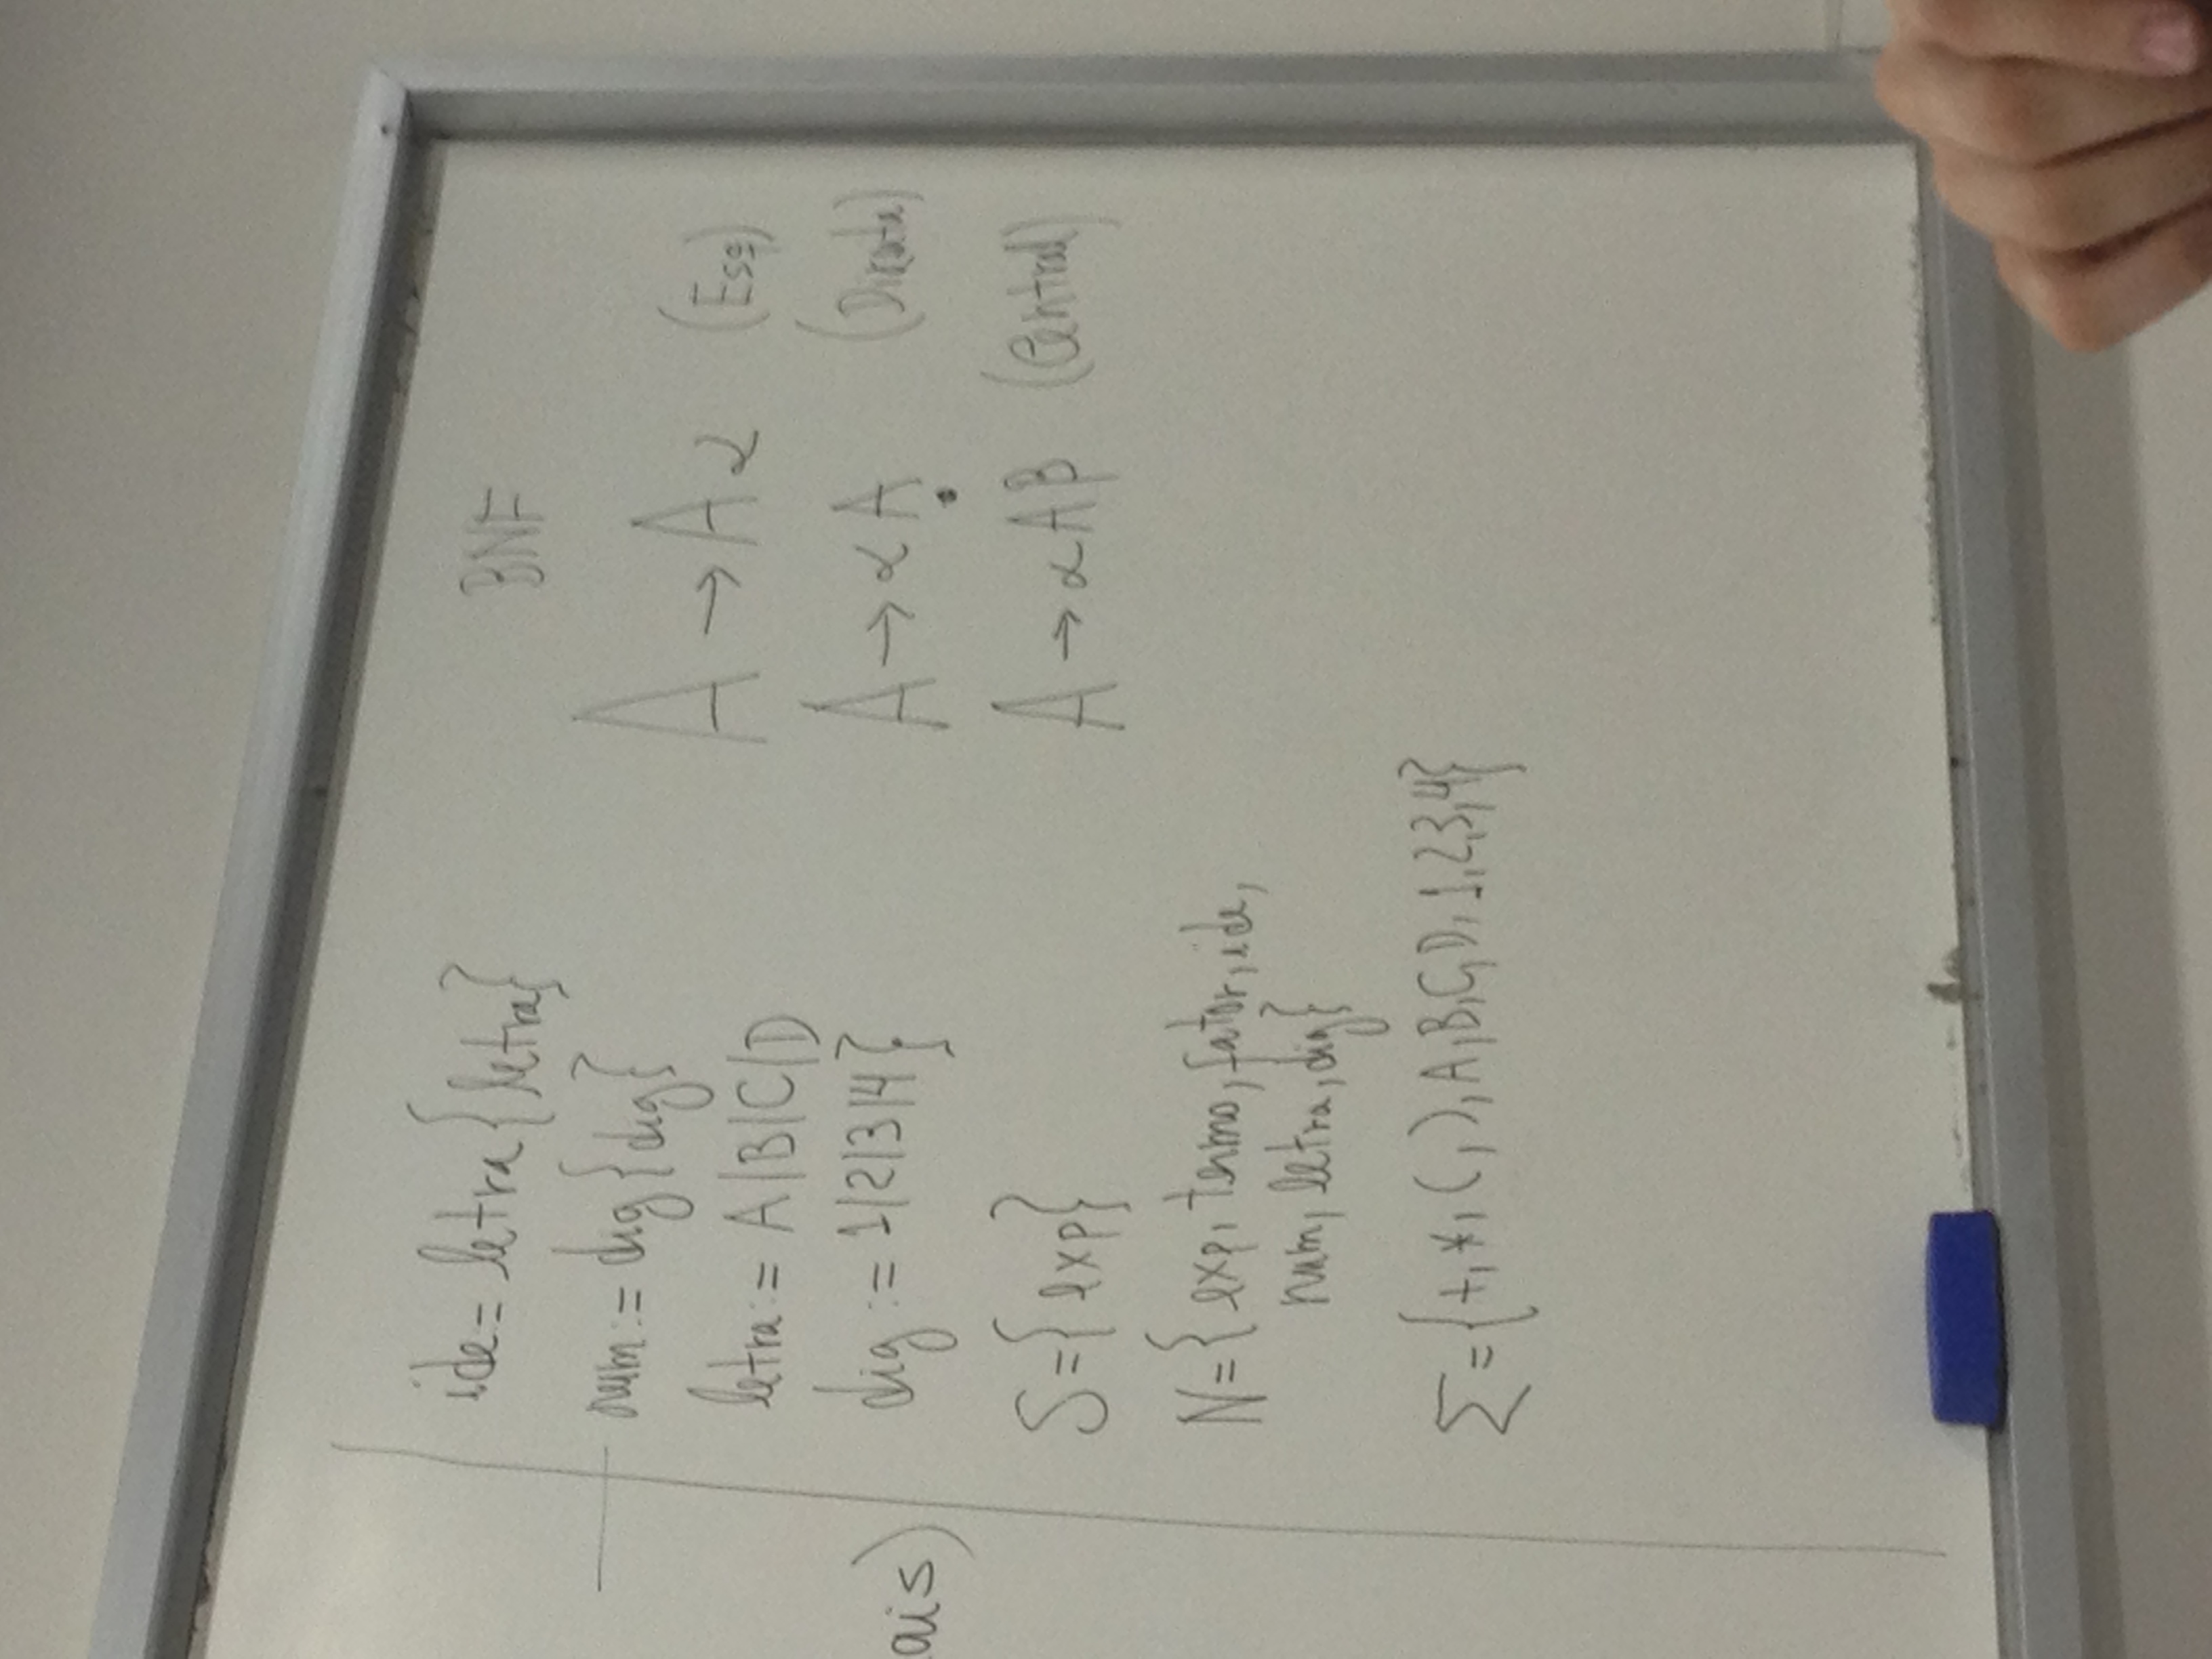 ais)
ide = letra {letra}
num := dig {dig}
letra := A|B|C|D
dig := 1|2|3|4}
S = {exp}
N = {exp, termo, fator, ide,
num, letra, dig}
Σ = {+, *, (, ), A, B, C, D, 1, 2, 3, 4}
BNF
A → A α (Esq)
A → α A (Direita)
A → α A β (Central)